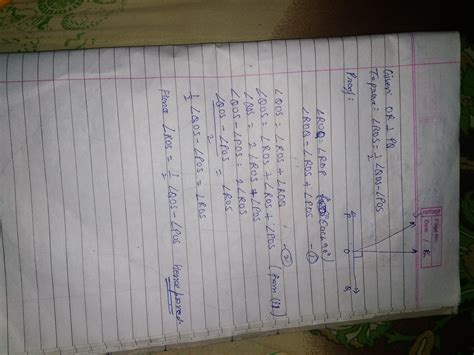 Given: OR ⊥ PQ
To prove: ∠ROS = 1/2 ∠QOS - ∠POS
Proof:
∠ROQ = ∠ROP (each 90°)
∠ROQ = ∠ROS + ∠POS - ①
∠QOS = ∠ROS + ∠ROQ - ②
∠QOS = ∠ROS + ∠ROS + ∠POS (from (1))
∠QOS = 2∠ROS + ∠POS
∠QOS - ∠POS = 2∠ROS
∠QOS - ∠POS / 2 = ∠ROS
1/2 ∠QOS - ∠POS = ∠ROS
Hence ∠ROS = 1/2 ∠QOS - ∠POS Hence proved
P O Q